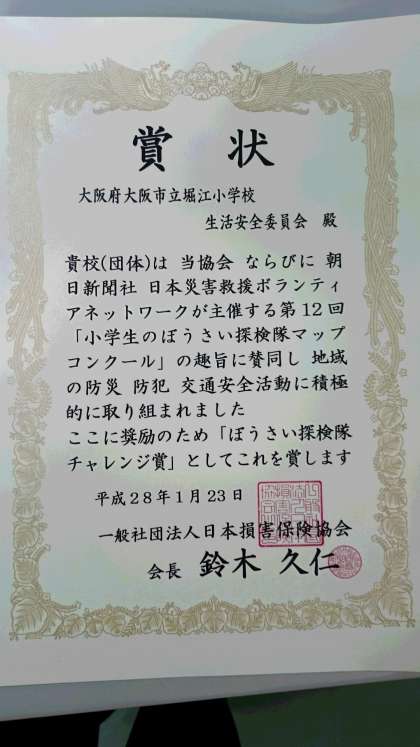 賞状
大阪府大阪市立堀江小学校
生活安全委員会 殿
貴校(団体)は 当協会 ならびに 朝
日新聞社 日本災害救援ボランティ
アネットワークが主催する第12回
「小学生のぼうさい探検隊マップ
コンクール」の趣旨に賛同し 地域
の防災 防犯 交通安全活動に積極
的に取り組まれました
ここに奨励のため「ぼうさい探検隊
チャレンジ賞」としてこれを賞します
平成28年1月23日
一般社団法人日本損害保険協会
会長 鈴木 久仁